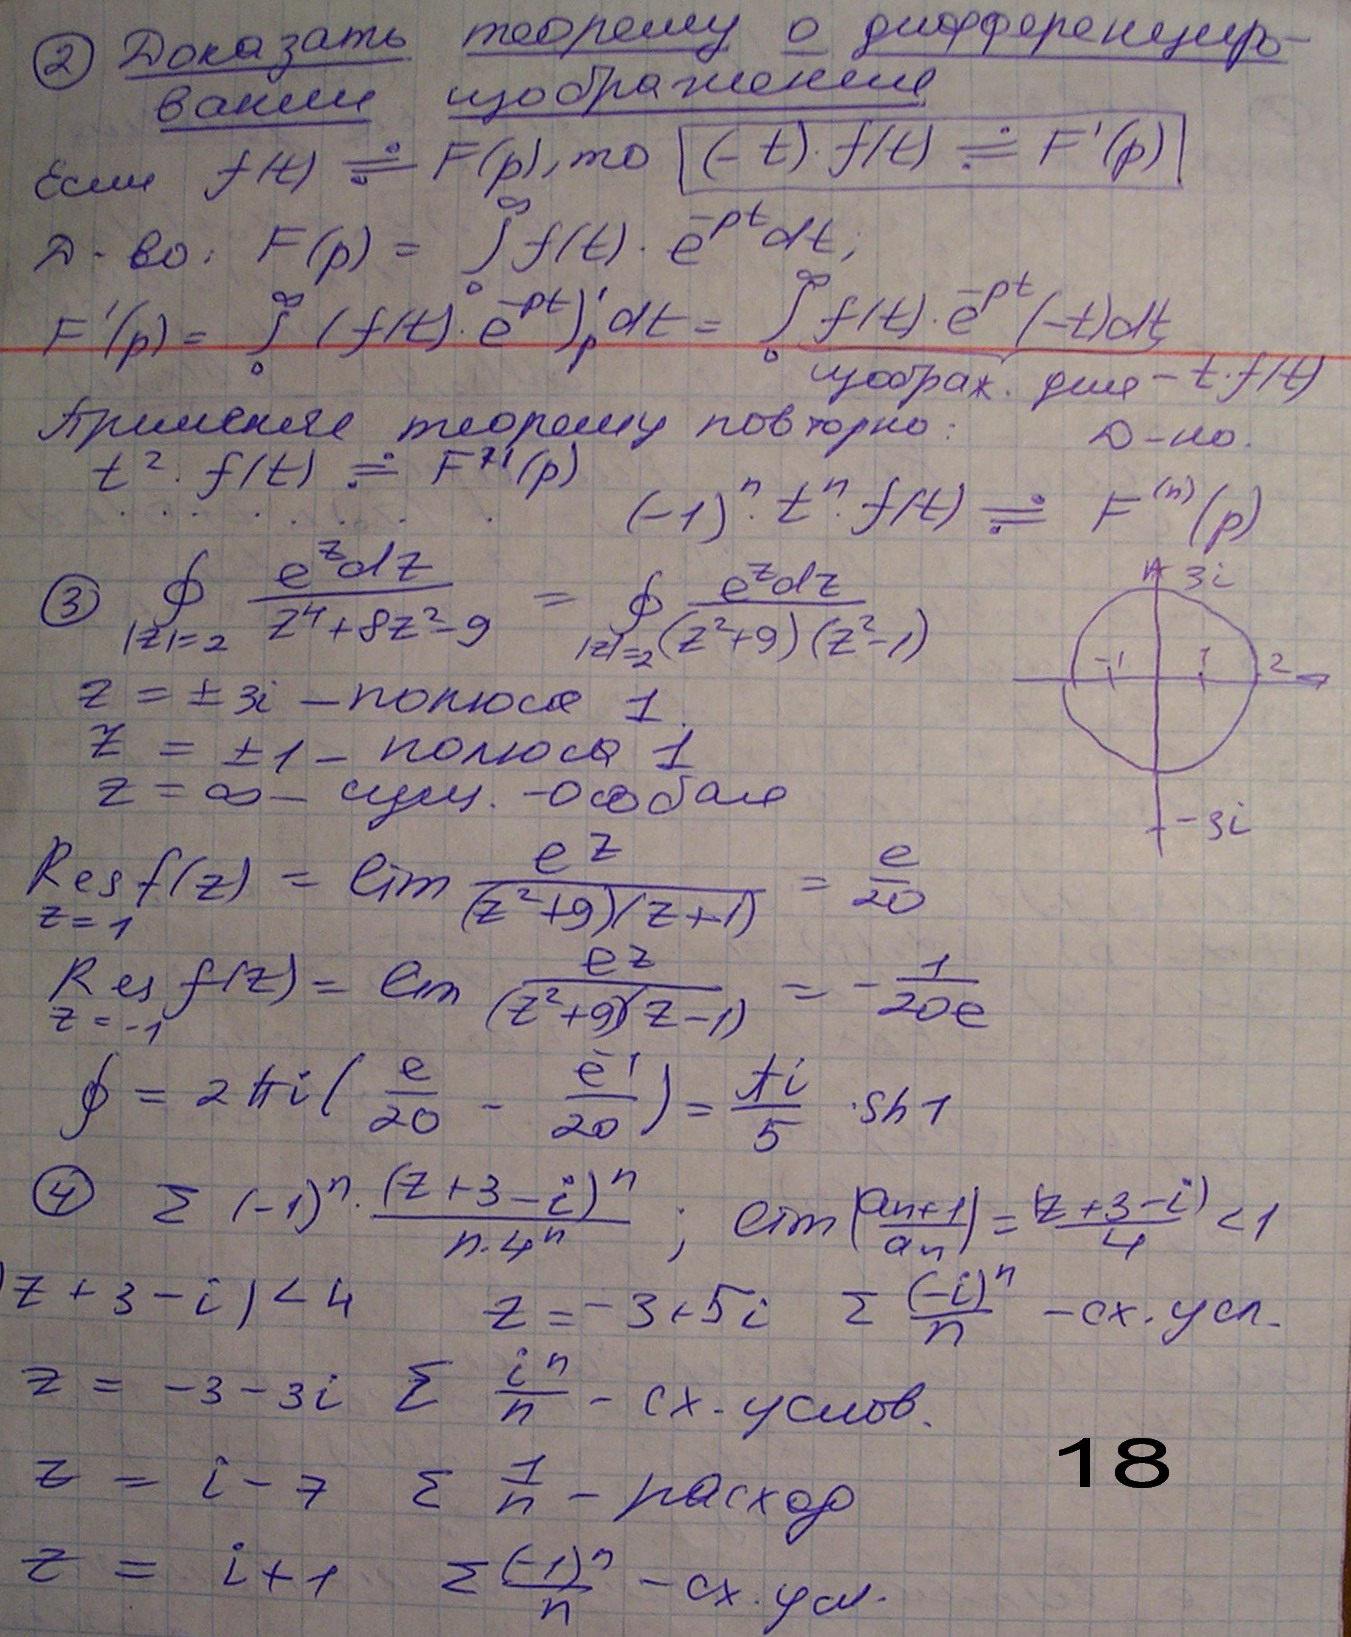 ② Доказать теорему о дифференциро-
вании изображения
Если f(t) ≓ F(p), то (-t)·f(t) ≓ F'(p)
Д-во: F(p) = ∫₀^∞ f(t)·e^{-pt}dt;
F'(p) = ∫₀^∞ (f(t)·e^{-pt})'_p dt = ∫₀^∞ f(t)·e^{-pt}(-t)dt
изображ. для -t·f(t)
Применяя теорему повторно: Д-но.
t²·f(t) ≓ F''(p)
. . . . . . . (-1)ⁿ·tⁿ·f(t) ≓ F^{(n)}(p)
③ ∮_{|z|=2} e^z dz / (z⁴+8z²-9) = ∮_{|z|=2} e^z dz / ((z²+9)(z²-1))
3i
-1 1 2
-3i
z = ±3i – полюса 1.
z = ±1 – полюса 1
z = ∞ – сущ. -особая
Res_{z=1} f(z) = lim e^z / ((z²+9)(z+1)) = e/20
Res_{z=-1} f(z) = lim e^z / ((z²+9)(z-1)) = -1/(20e)
∮ = 2πi(e/20 - e^{-1}/20) = πi/5 ·sh1
④ Σ (-1)ⁿ·(z+3-i)ⁿ/(n·4ⁿ) ; lim|a_{n+1}/a_n| = |z+3-i|/4 < 1
|z+3-i| < 4 z = -3+5i Σ (-i)ⁿ/n – сх. усл.
z = -3-3i Σ iⁿ/n – сх. услов.
z = i-7 Σ 1/n – расход
z = i+1 Σ (-1)ⁿ/n – сх. усл.
18